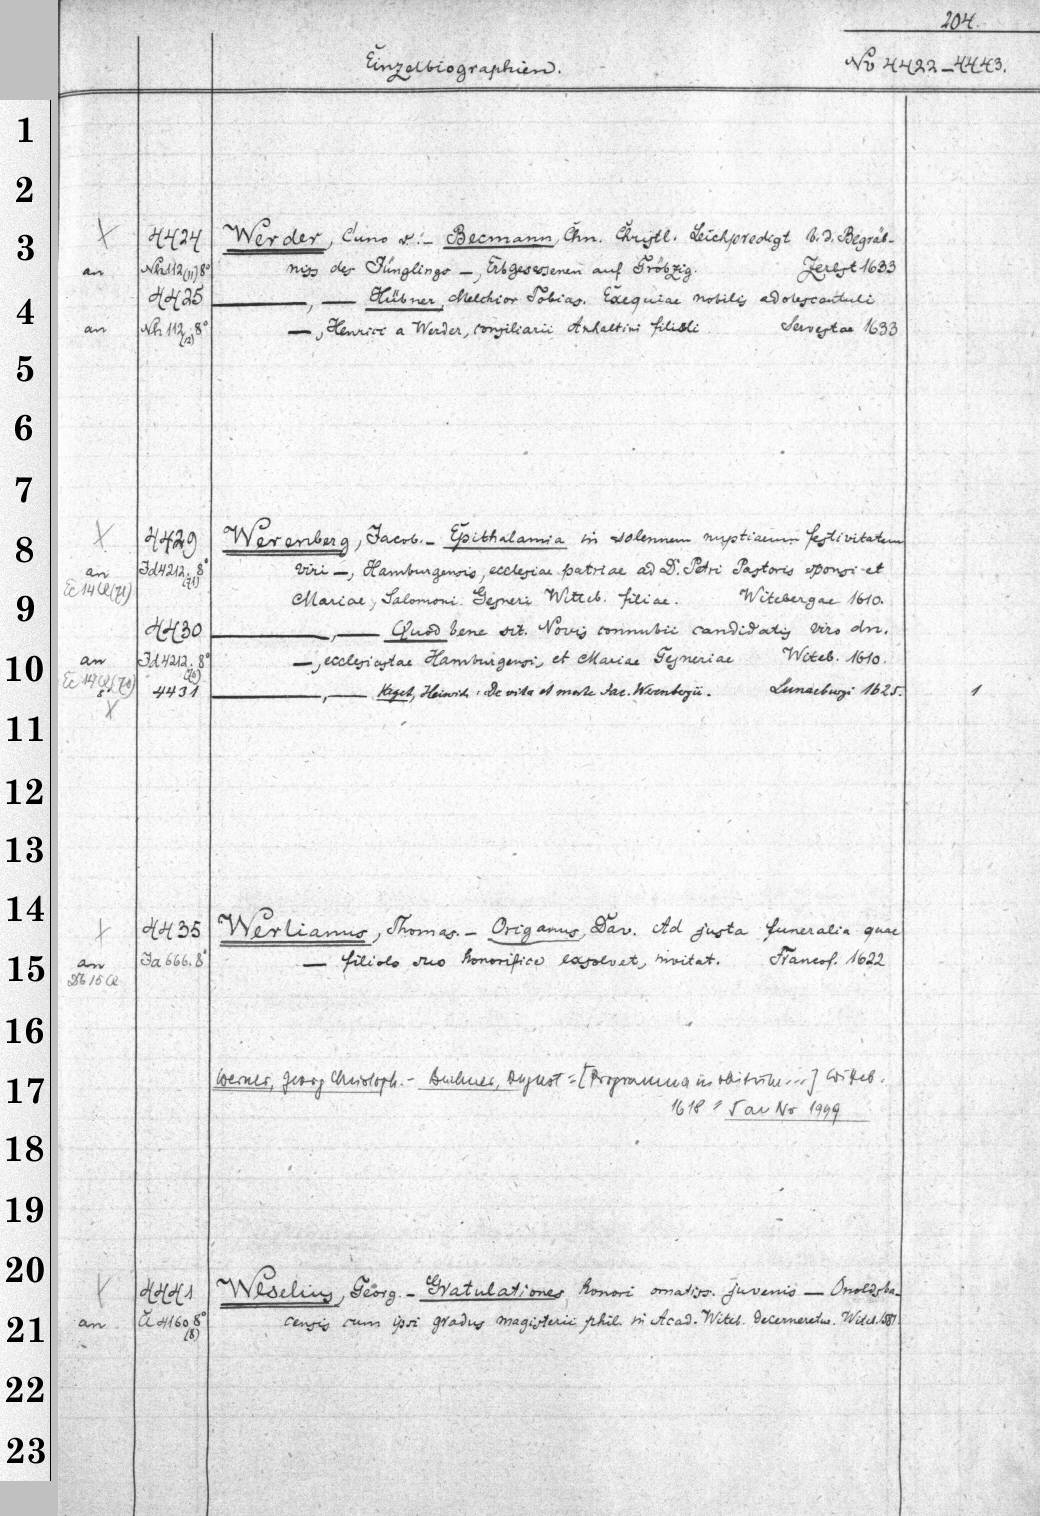 204.
Einzelbiographien.
No 4422-4443.
1
2
3
4
5
6
7
8
9
10
11
12
13
14
15
16
17
18
19
20
21
22
23
4424 Werder, Cuno v:- Becmann, Chn. Christl. Leichpredigt b.d. Begräb-
an Nh 112(11) 8° niss des Jünglings —, Erbgesessenen auf Gröbzig. Zerbst 1633
4425 —, — Hübner, Melchior Tobias. Exequiae nobilis adolescentuli
an Nh 112(12) 8° —, Henrici a Werder, consiliarii Anhaltini filioli Servestae 1633
4429 Werenberg, Jacob.- Epithalamia in solennem nuptiarum festivitatem
an Id 4212. 8° (71) viri —, Hamburgensis, ecclesiae patriae ad D. Petri Pastoris sponsi et
Mariae, Salomoni Gesneri Witteb. filiae. Witebergae 1610.
4430 —, — Quod bene sit. Novis connubii candidatis viro dn.
an Id 4212. 8° (70) —, ecclesiastae Hamburgensi, et Mariae Gesneriae Witeb. 1610.
4431 —, — Hagel, Heinrich: De vita et morte Jac. Werenbergii. Lunaeburgi 1625. 1
4435 Werlianus, Thomas.- Origanus, Dav. Ad justa funeralia quae
an Ja 666. 8° — filiolo suo honorifice exsolvet, invitat. Francof. 1622
Werner, Georg Christoph.- Buchner, August: [Programma in obitum...] Witteb.
1618 No 1999
4441 Weselius, Georg.- Gratulationes honori ornatiss. juvenis — Onoldsba-
an Či 4160 8° (8) censis cum ipsi gradus magisterii phil. in Acad. Witeb. decerneretur. Witeb. 1587